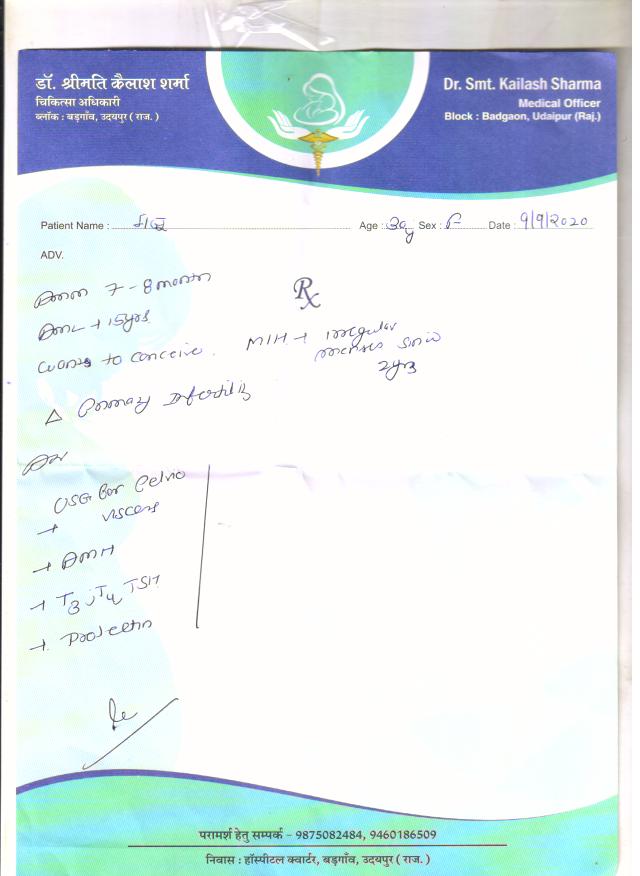 डॉ. श्रीमति कैलाश शर्मा
चिकित्सा अधिकारी
ब्लॉक : बड़गाँव, उदयपुर ( राज. )
Dr. Smt. Kailash Sharma
Medical Officer
Block : Badgaon, Udaipur (Raj.)
Patient Name :
Age : 30y Sex : F Date : 9/9/2020
ADV.
7 - 8 month
Rx
15yrs
wants to conceive.
M/H → irregular
menses since
2yrs
△ Primary Infertility
USG for Pelvic
viscera
→ AMH
→ T3, T4, TSH
→ Prolectin
परामर्श हेतु सम्पर्क – 9875082484, 9460186509
निवास : हॉस्पीटल क्वार्टर, बड़गाँव, उदयपुर ( राज. )